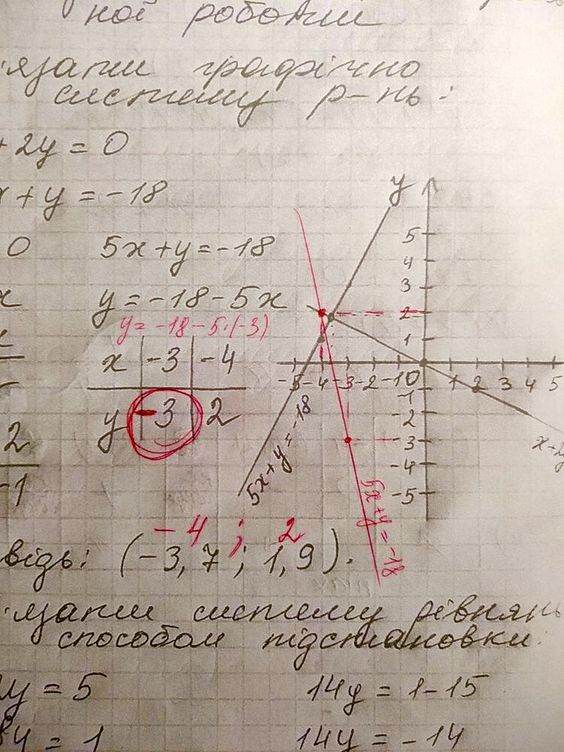 ної роботи
язати графічно
систему р-нь:
+ 2y = 0
x + y = -18
0
5x + y = -18
y = -18 - 5x
y = -18 - 5·(-3)
x -3 -4
y -3 2
2
-1
y
5
4
3
2
1
-5 -4 -3 -2 -1 0 1 2 3 4 5
-1
-2
-3
-4
-5
5x + y = -18
5x + y = -18
-4 ; 2
відь: (-3,7 ; 1,9).
язати систему рівнянь
способом підстановки:
y = 5
14y = 1 - 15
y = 1
14y = -14